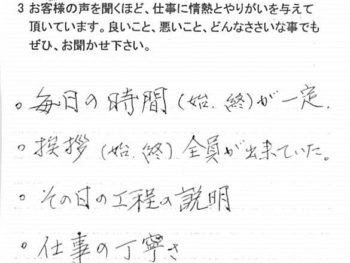 3 お客様の声を聞くほど、仕事に情熱とやりがいを与えて
頂いています。良いこと、悪いこと、どんなささいな事でも
ぜひ、お聞かせ下さい。
○毎日の時間(始.終)が一定.
○挨拶(始.終)全員が出来ていた。
○その日の工程の説明
○仕事の丁寧さ